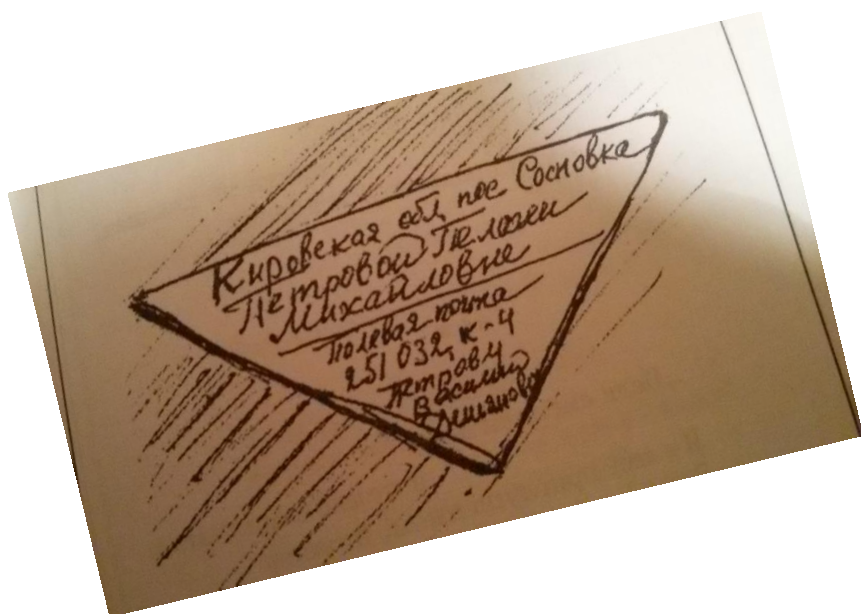 Кировская обл, пос Сосновка
Петровой Пелагеи
Михайловне
Полевая почта
251 032, К-4
Петров
Василий